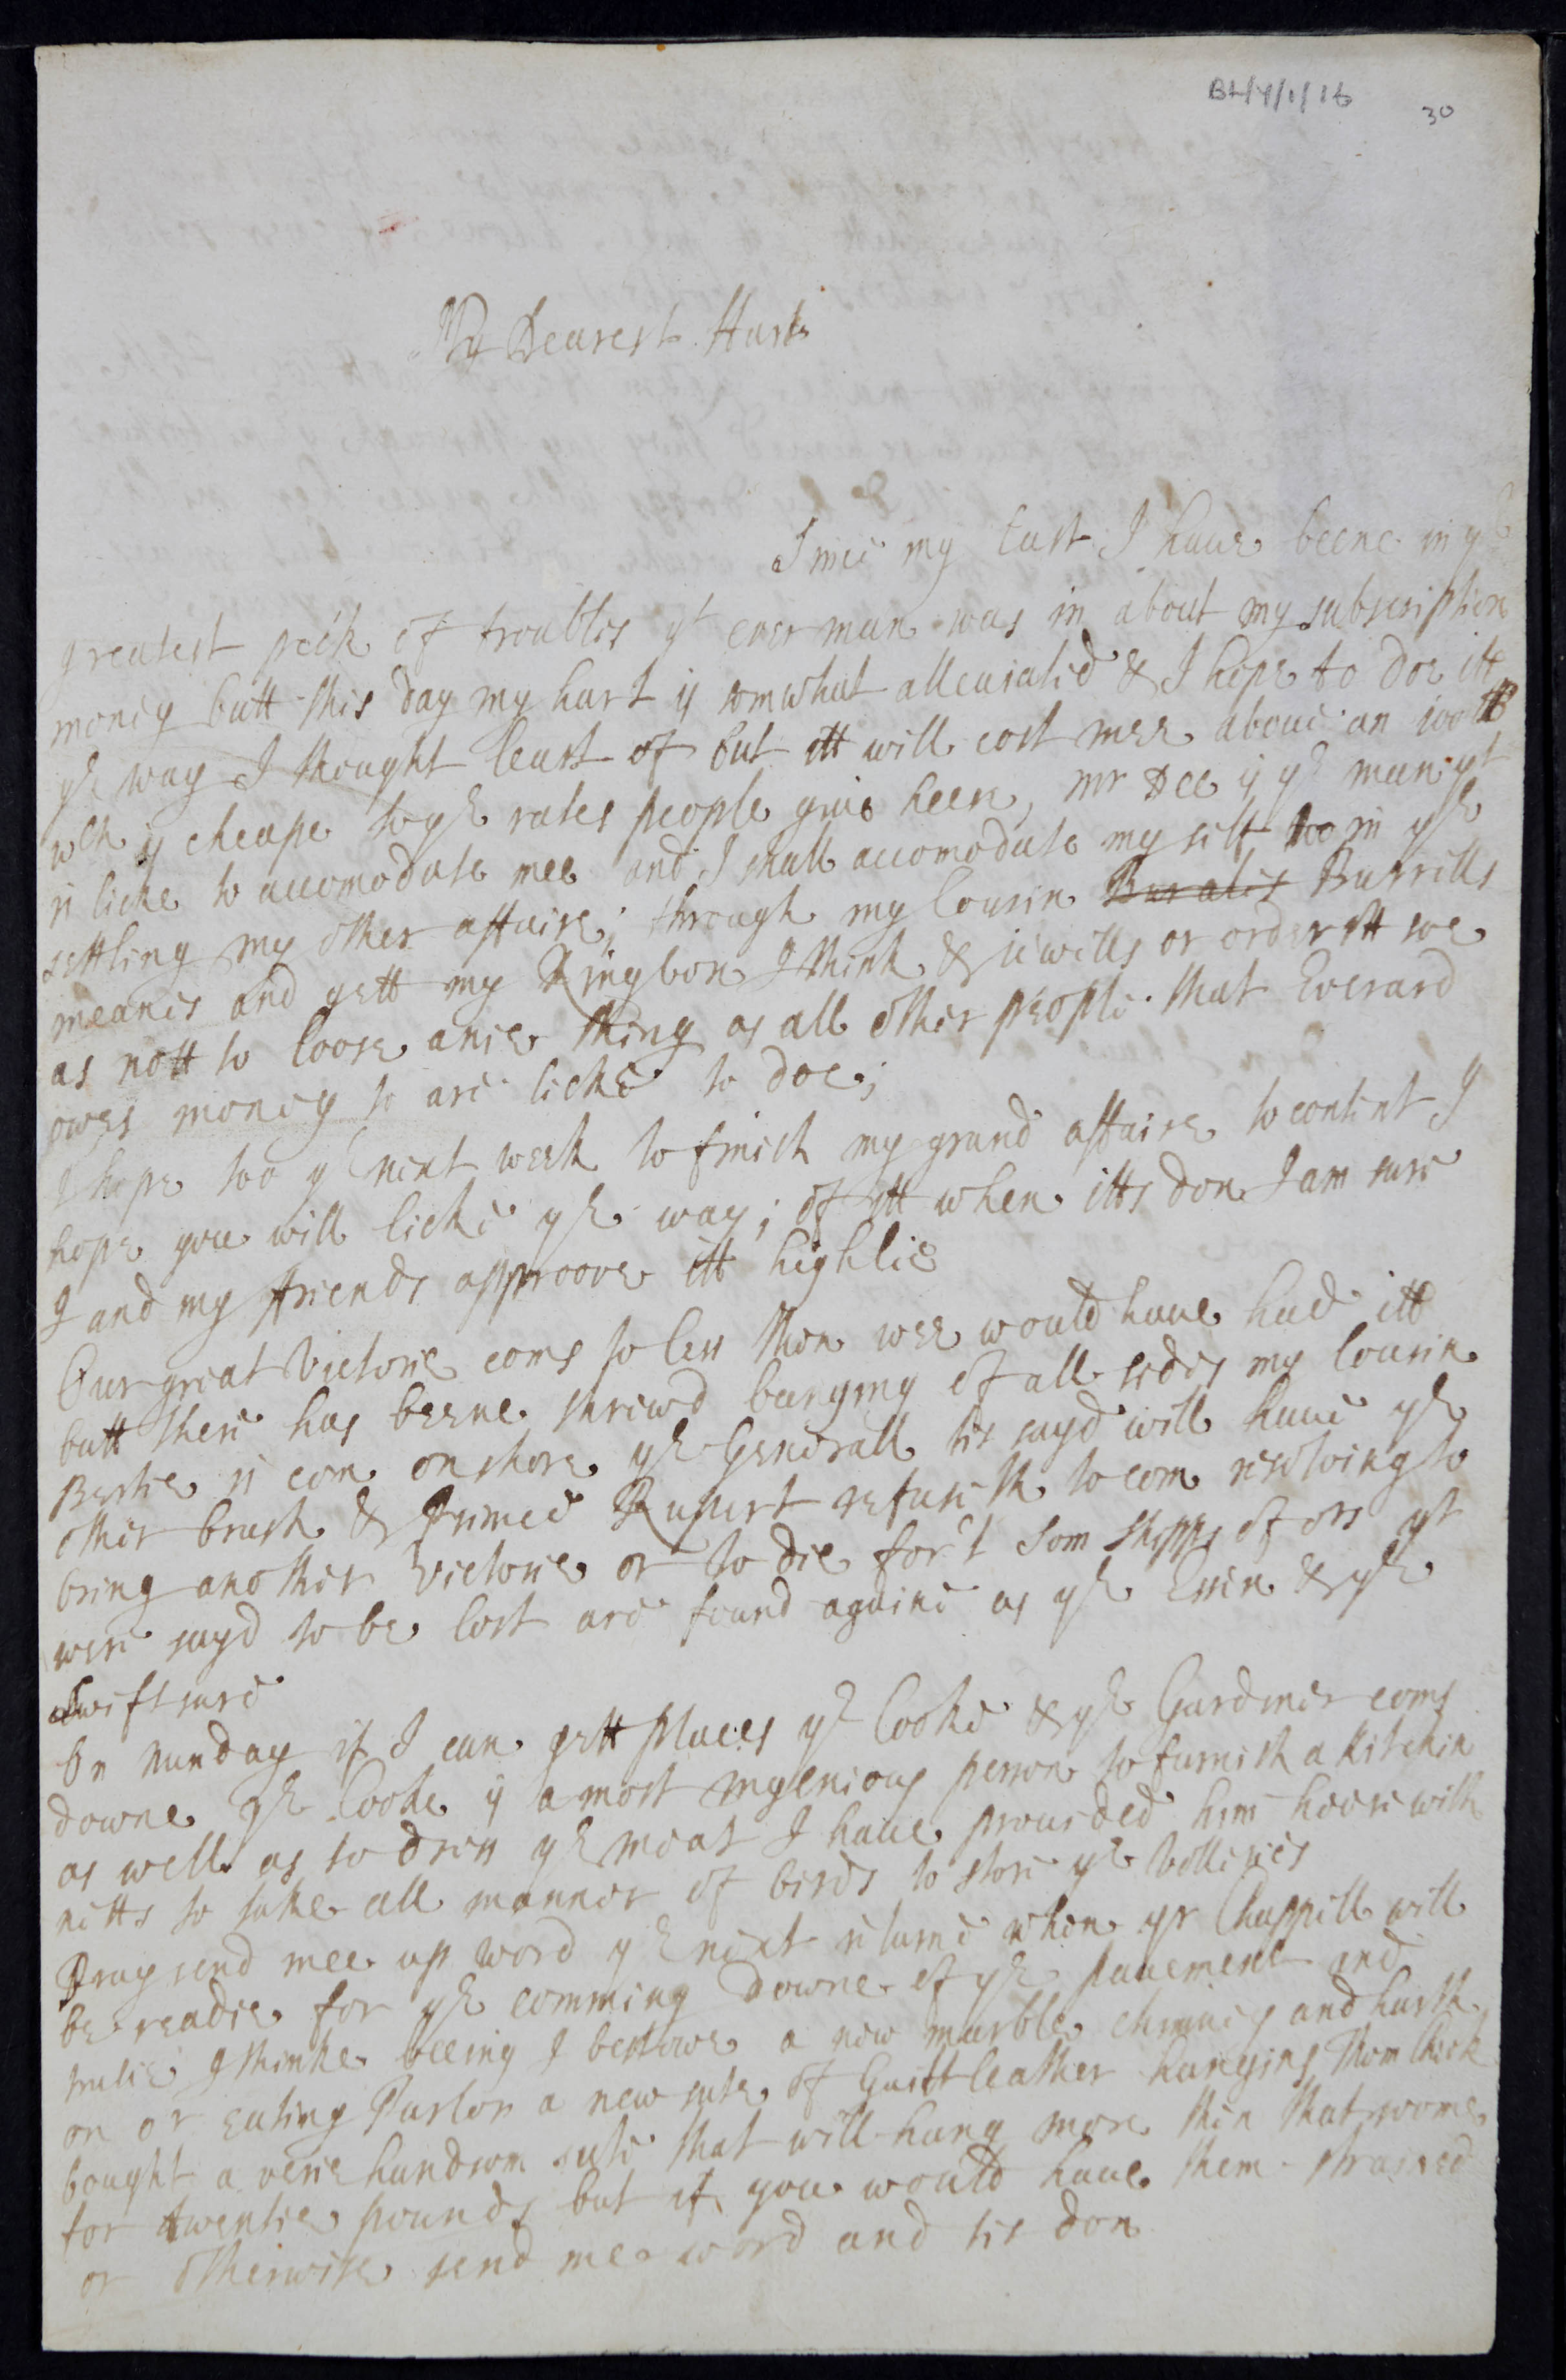 BH/4/1/16
30
My Dearest Hart
Since my last I haue beene in ye
greatest peck of troubles yt ever man was in about my subscription
money butt this day my hart is somwhat alleuiatid & I hope to doe itt
ye way I thought least of but itt will cost mee aboue an 100ll
wch is cheape to ye rates people giue heer, Mr Dee is ye man yt
is licke to accomodate mee and I shall accomodate my self too in ye
settling my other affaire; through my Cousin Buralis Burrills
meanes and gett my Kingbon I think & iewills or order itt soe
as nott to loose anie thing as all other people that Everard
owes money to are licke to doe;
I hope too ye next week to finish my grand affaire to content I
hope you will licke ye way; of itt when itts don I am sure
I and my friends approove itt highlie
Our great Victorie coms to less then wee would haue had itt
butt there has beene shrewd banging of all sides my Cousin
Bertie is com on shore ye Generall tis sayd will haue ye
other brush & Prince Rupert refuseth to com resolving to
bring another Victorie or to die for't som shipps of ors yt
were sayd to be lost are found againe as ye Essex & ye
Swiftsure
On munday if I can gett places ye Cooke & ye Gardiner coms
downe ye Cooke is a most ingenious person to furnish a Kitchin
as well as to dress ye meat I haue prouided him heere with
netts to take all manner of birds to store ye Volleries
Pray send mee up word ye next returne when yr Chappill will
be readie for ye comming downe of ye pauement and
trulie I thinke beeing I bestowe a new marble chimney and harth
on or eating Parlor a new sute of Guilt leather hangings Thom Cooke
bought a verie handsom sute that will hang more then that roome
for twentie pounds but if you would haue them strained
or otherwise send me word and tis don